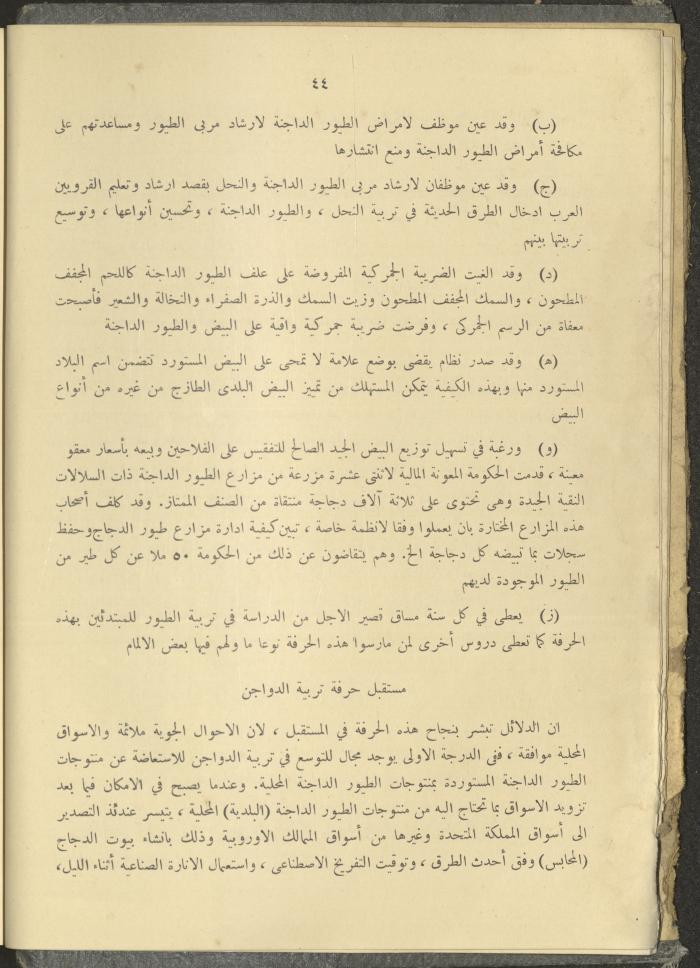 ٤٤
(ب) وقد عين موظف لامراض الطيور الداجنة لارشاد مربى الطيور ومساعدتهم على
مكافحة أمراض الطيور الداجنة ومنع انتشارها
(ج) وقد عين موظفان لارشاد مربى الطيور الداجنة والنحل بقصد ارشاد وتعليم القرويين
العرب ادخال الطرق الحديثة في تربية النحل ، والطيور الداجنة ، وتحسين أنواعها ، وتوسيع
تربيتها بينهم
(د) وقد الغيت الضريبة الجمركية المفروضة على علف الطيور الداجنة كاللحم المجفف
المطحون ، والسمك المجفف المطحون وزيت السمك والذرة الصفراء والنخالة والشعير فأصبحت
معفاة من الرسم الجمركى ، وفرضت ضريبة جمركية واقية على البيض والطيور الداجنة
(ه) وقد صدر نظام يقضى بوضع علامة لا تمحى على البيض المستورد تتضمن اسم البلاد
المستورد منها وبهذه الكيفية يتمكن المستهلك من تمييز البيض البلدى الطازج من غيره من أنواع
البيض
(و) ورغبة في تسهيل توزيع البيض الجيد الصالح للتفقيس على الفلاحين وبيعه بأسعار معقو
معينة ، قدمت الحكومة المعونة المالية لاثنتى عشرة مزرعة من مزارع الطيور الداجنة ذات السلالات
النقية الجيدة وهى تحتوى على ثلاثة آلاف دجاجة منتقاة من الصنف الممتاز. وقد كلف أصحاب
هذه المزارع المختارة بان يعملوا وفقا لانظمة خاصة ، تبين كيفية ادارة مزارع طيور الدجاج وحفظ
سجلات بما تبيضه كل دجاجة الخ. وهم يتقاضون عن ذلك من الحكومة ٥٠ ملا عن كل طير من
الطيور الموجودة لديهم
(ز) يعطى في كل سنة مساق قصير الاجل من الدراسة في تربية الطيور للمبتدئين بهذه
الحرفة كما تعطى دروس أخرى لمن مارسوا هذه الحرفة نوعا ما ولهم فيها بعض الالمام
مستقبل حرفة تربية الدواجن
ان الدلائل تبشر بنجاح هذه الحرفة في المستقبل ، لان الاحوال الجوية ملائمة والاسواق
المحلية موافقة ، ففى الدرجة الاولى يوجد مجال للتوسع في تربية الدواجن للاستعاضة عن منتوجات
الطيور الداجنة المستوردة بمنتوجات الطيور الداجنة المحلية. وعندما يصبح في الامكان فيما بعد
تزويد الاسواق بما تحتاج اليه من منتوجات الطيور الداجنة (البلدية) المحلية ، يتيسر عندئذ التصدير
الى أسواق المملكة المتحدة وغيرها من أسواق الممالك الاوروبية وذلك بانشاء بيوت الدجاج
(المحابس) وفق أحدث الطرق ، وتوقيت التفريخ الاصطناعى ، واستعمال الانارة الصناعية أثناء الليل،